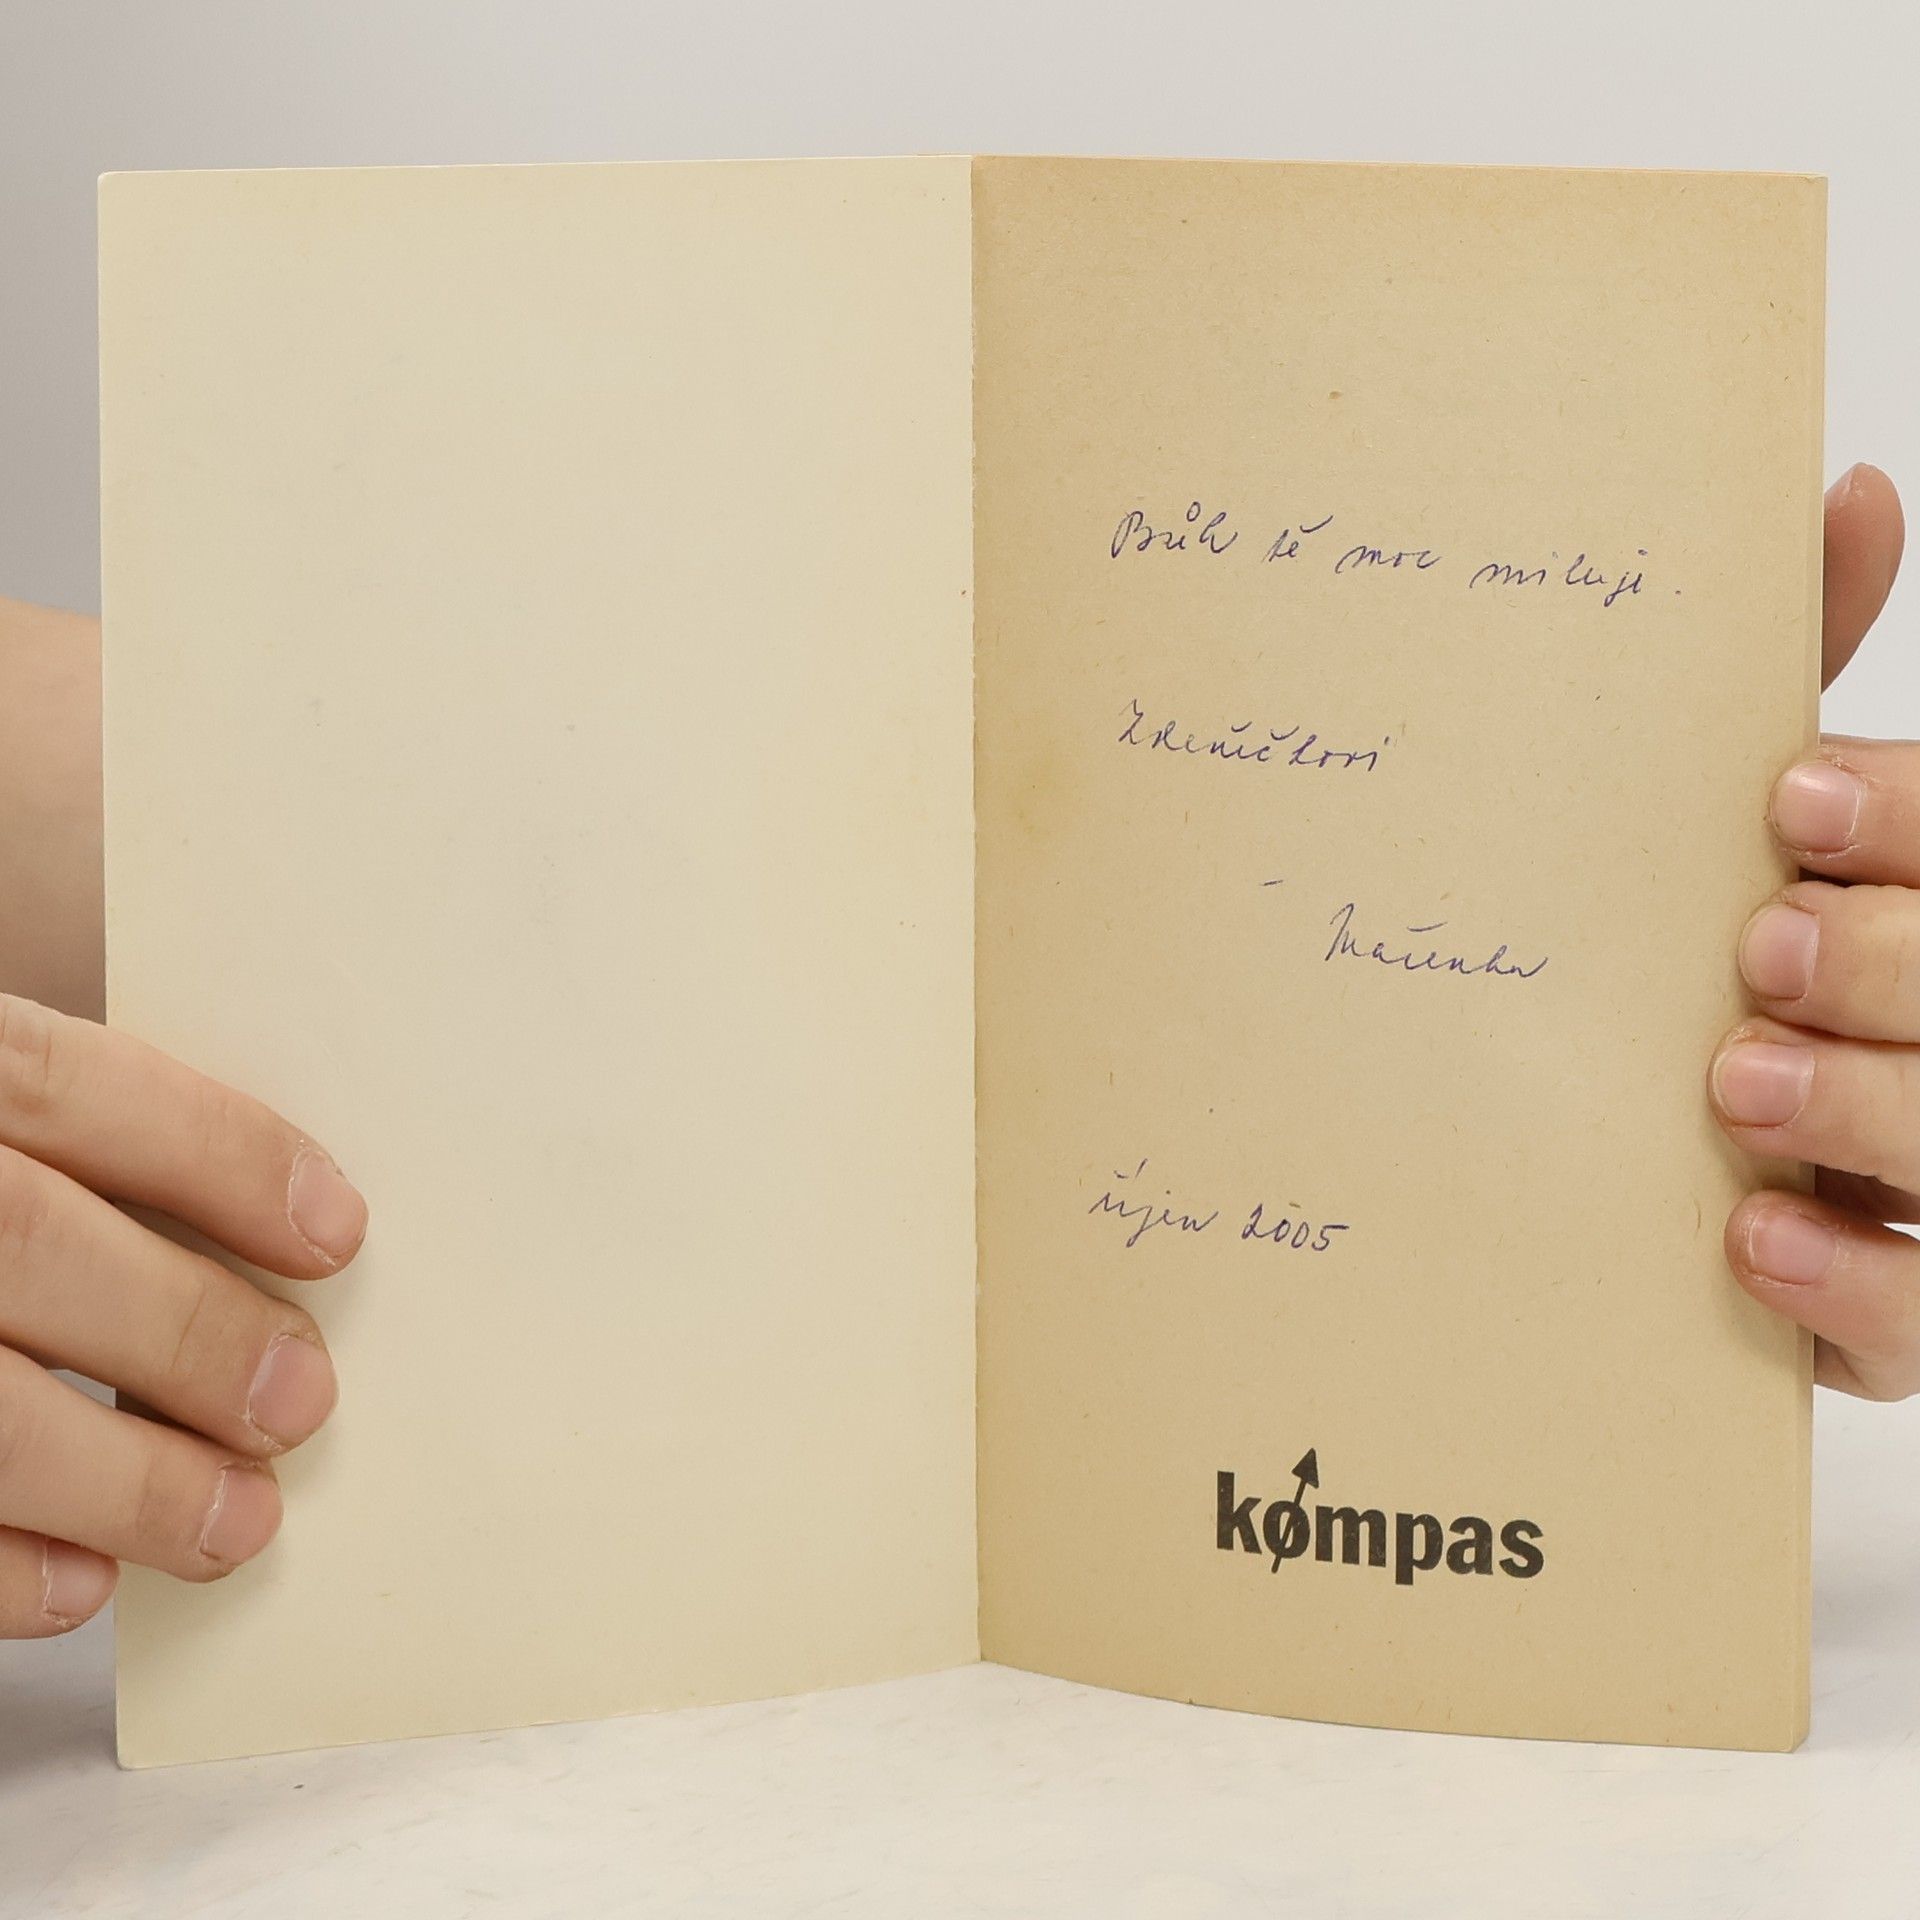 Bůh tě moc miluje.
Zdeníčkovi
– Mařenka
říjen 2005
kompas